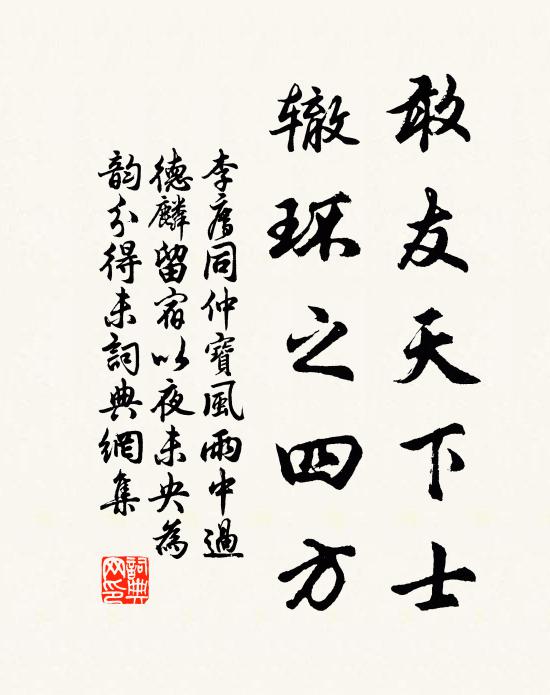 敢友天下士
辙环之四方
李廌同仲寶風雨中過
德麟留宿以夜未央為
韵分得未詞典網集
詞典网印